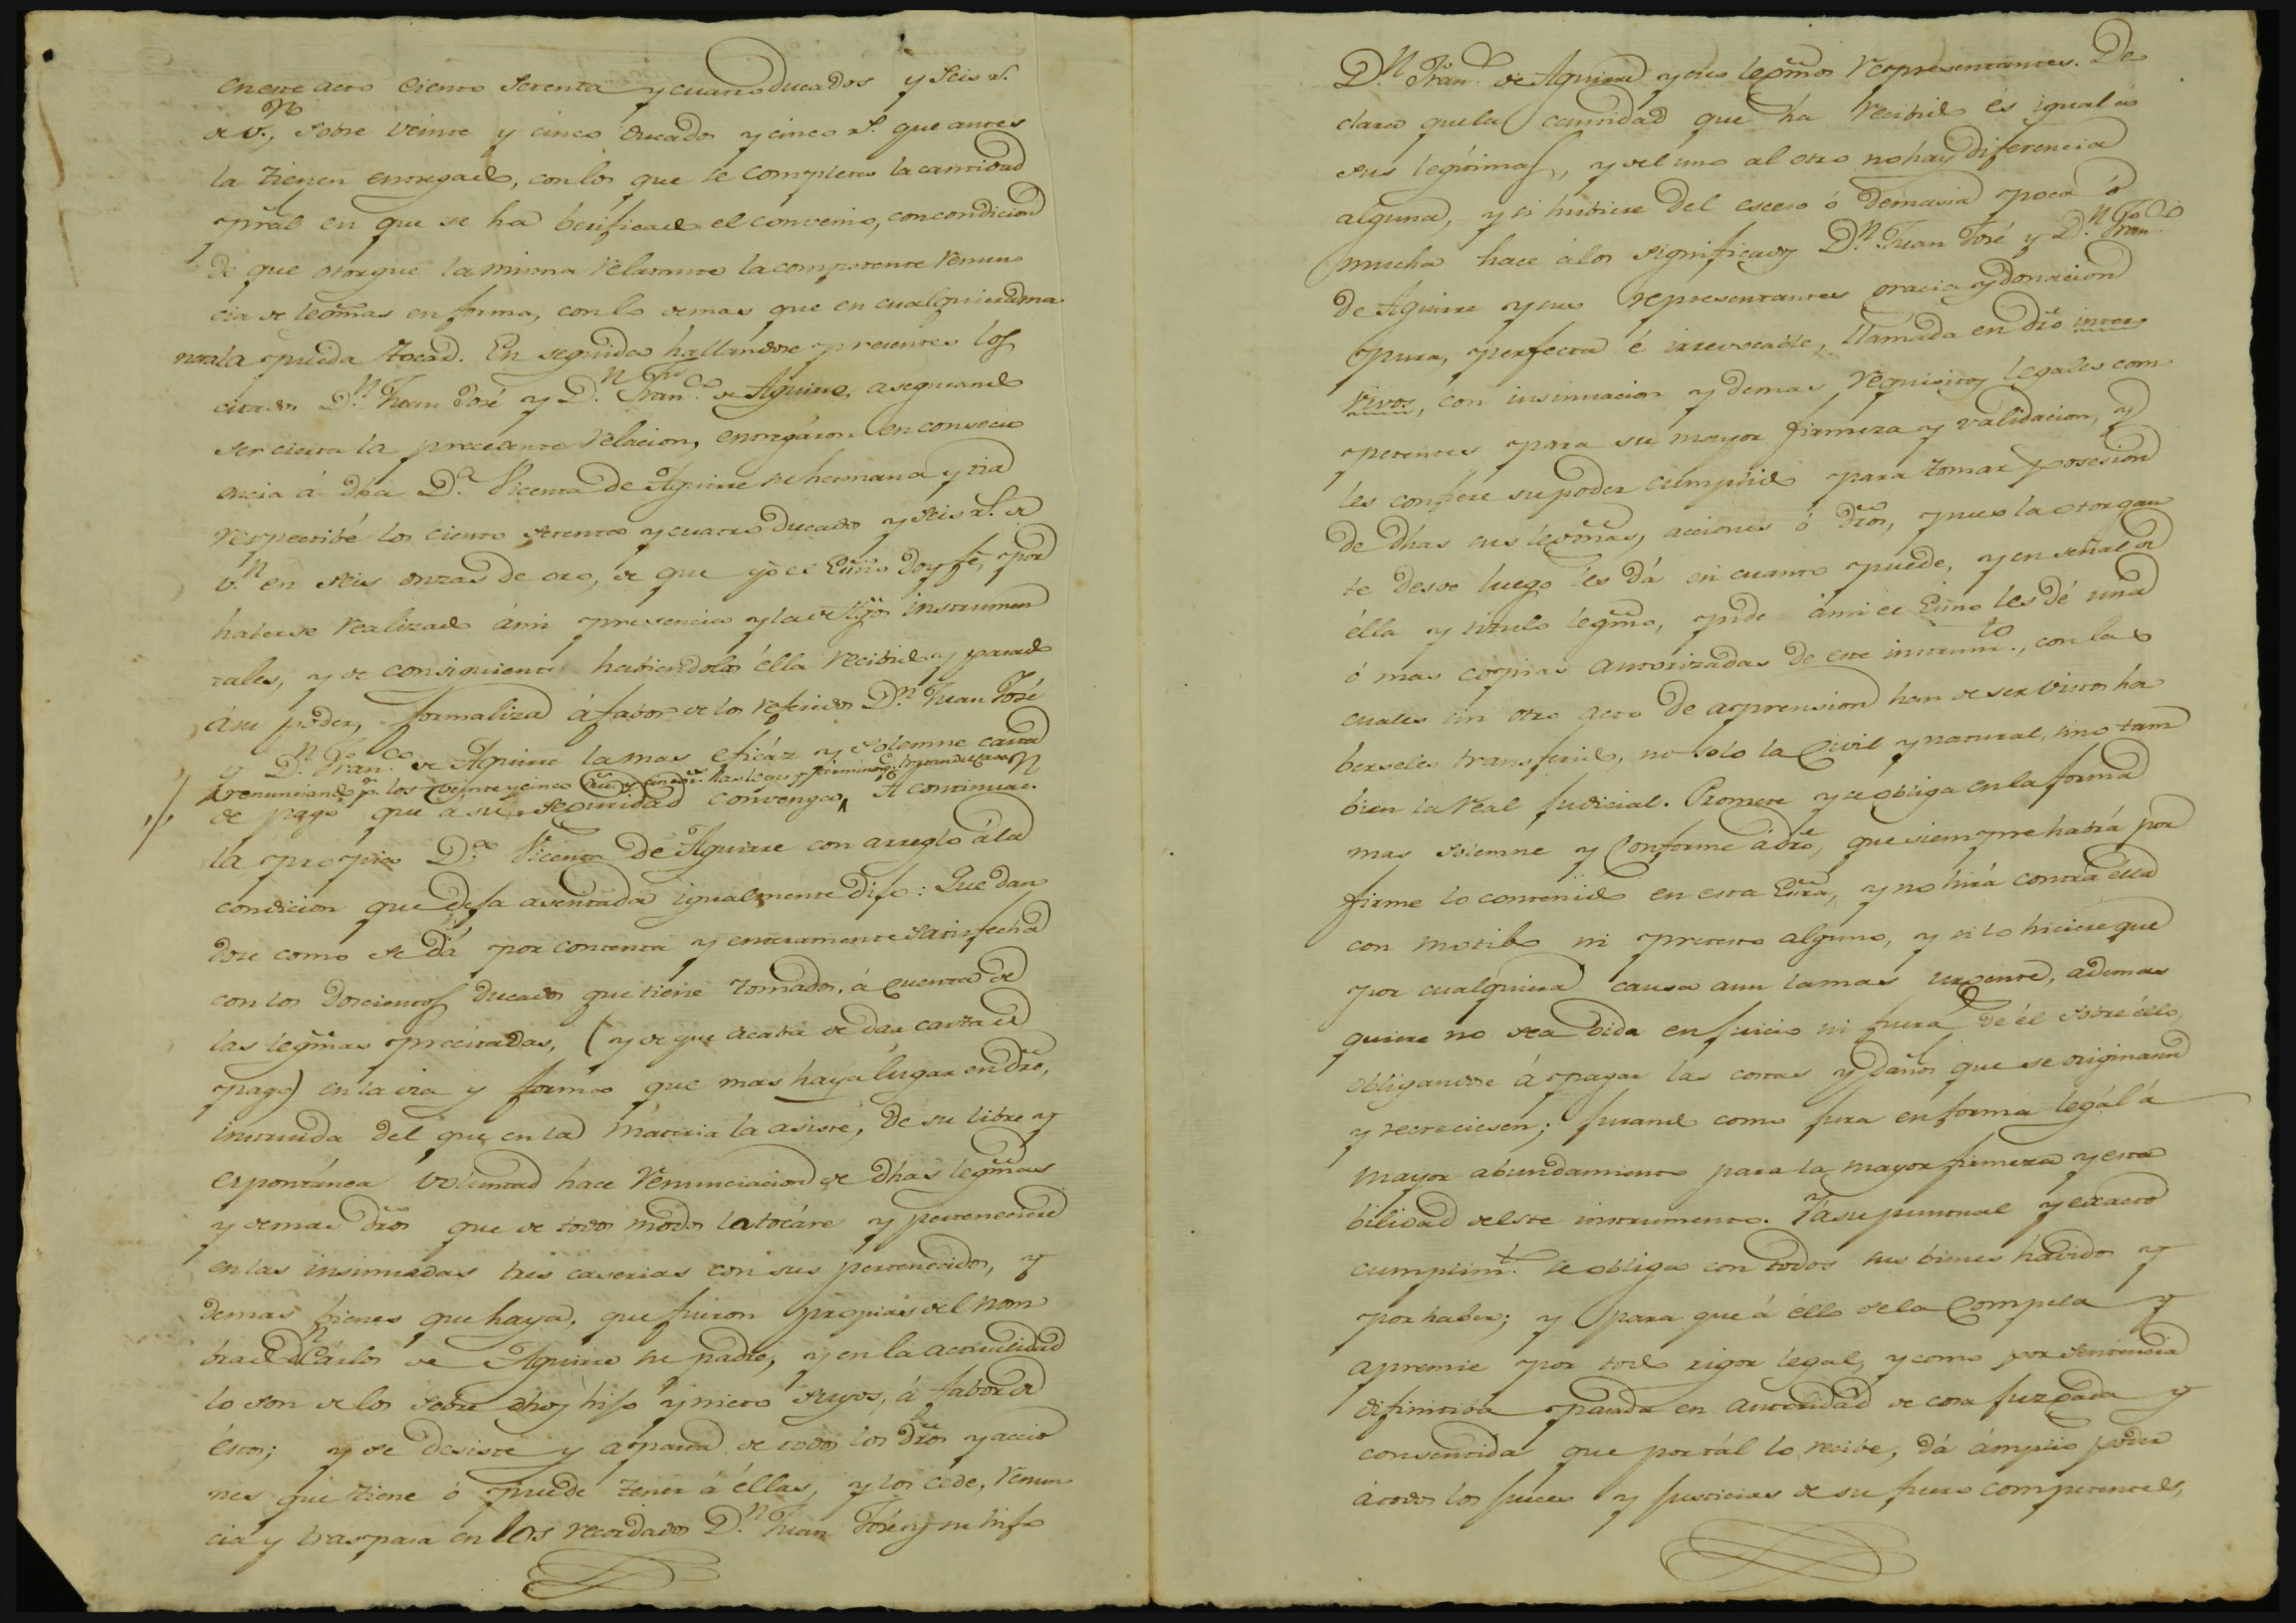 en este acto Ciento setenta y cuatro ducados y seis r.^s
de v.^n, sobre veinte y cinco ducados y cinco r.^s que antes
la tienen entregado, con los que se completa la cantidad
pral en que se ha berificado el convenio, con condicion
de que otorgue la misma relatante la competente renun
cia de legmas en forma, con lo demas que en cualquiera ma
nera la pueda tocar. En seguida hallandose presentes los
citados D.^n Juan José y D.^n Fran.^co de Aguirre, asegurando
ser cierta la precedente relacion, entregáron en consecu
encia á dha D.^a Vicenta de Aguirre su hermana y tia
respectibé los ciento setenta y cuatro ducados y seis r.^s de
v.^n en seis onzas de oro, de que yo el Esño doy fé, por
haberse realizado á mi presencia y la de tgõs instrumen
tales, y de consiguiente habiendolos élla recibido y pasado
á su poder, formaliza á fabor de los referidos D.^n Juan José
y D.^n Fran.^co de Aguirre la mas eficáz y solemne carta
renunciando p.^r los veinte y cinco y cinco r.^s las leyes y
de pago que á su seguridad convenga. A continuac.^n
la propia D.^a Vicenta de Aguirre con arreglo á la
condicion que deja asentada igualmente dijo: Que dan
dose como se dá por contenta y enteramente satisfecha
con los doscientos ducados que tiene tomados, á cuenta de
las legmas precitadas, (y de que acaba de dar carta de
pago) en la via y forma que mas haya lugar en dro,
instruida del que en la materia la asiste, de su libre y
espontánea voluntad hace renunciacion de dhas legmas
y demas dros que de todos modos la tocáre y perteneciere
en las insinuadas tres caserias con sus pertenecidos, y
demas bienes que haya, que fueron propias del nom
brado D.^n Cárlos de Aguirre su padre, y en la actualidad
lo son de los sobre dhos hijo y nieto suyos, á fabor de
éstos; y se desiste y aparta de todos los dros y accio
nes que tiene ó puede tener á éllas, y los cede, renun
cia y traspasa en los recordados D.^n Juan José y su hijo
D.^n Fran.^co de Aguirre y sus legmos representantes. De
clara que la cantidad que ha recibido és igual á
sus legitimas, y del uno al otro no hay diferencia
alguna, y si hubiere del esceso ó demasia poca ó
mucha hace á los significados D.^n Juan José y D.^n Fran.^co
de Aguirre y sus representantes gracia y donacion
pura, perfecta é irrevocable, llamada en dro inter
vivos, con insinuacion y demas requisitos legales com
petentes para su mayor firmeza y validacion, y
les confiere su poder cumplido para tomar posesion
de dhas sus legmas, acciones ó dros, pues la otorgan
te desde luego les dá en cuanto puede, y en señal de
élla y titulo legmo, pide á mi el Esño les dé una
ó mas copias autorizadas de este instrum.^to, con las
cuales sin otro acto de aprension han de ser visto ha
berseles transferido, no solo la civil y natural, sino tam
bien la real judicial. Promete y se obliga en la forma
mas solemne y conforme á dro, que siempre habrá por
firme lo contenido en esta Esra, y no hirá contra élla
con motibo ni pretesto alguno, y si lo hiciere que
por cualquiera causa aun la mas urgente, ademas
quiere no sea oida en juicio ni fuera de él sobre éllo,
obligandose á pagar las costas y daños que se originaren
y recreciesen; jurando como jura en forma legál á
mayor abundamiento para la mayor firmeza y esta
bilidad de este instrumento. Y á su puntual y exacto
cumplim.^to se obliga con todos sus bienes havidos y
por haber; y para que á éllo se la compela y
apremie por todo rigor legal, y como por sentencia
difinitiba pasada en autoridad de cosa juzgada y
consentida que por tál lo recibe, dá ámplio poder
á todos los jueces y justicias de su fuero competentes,